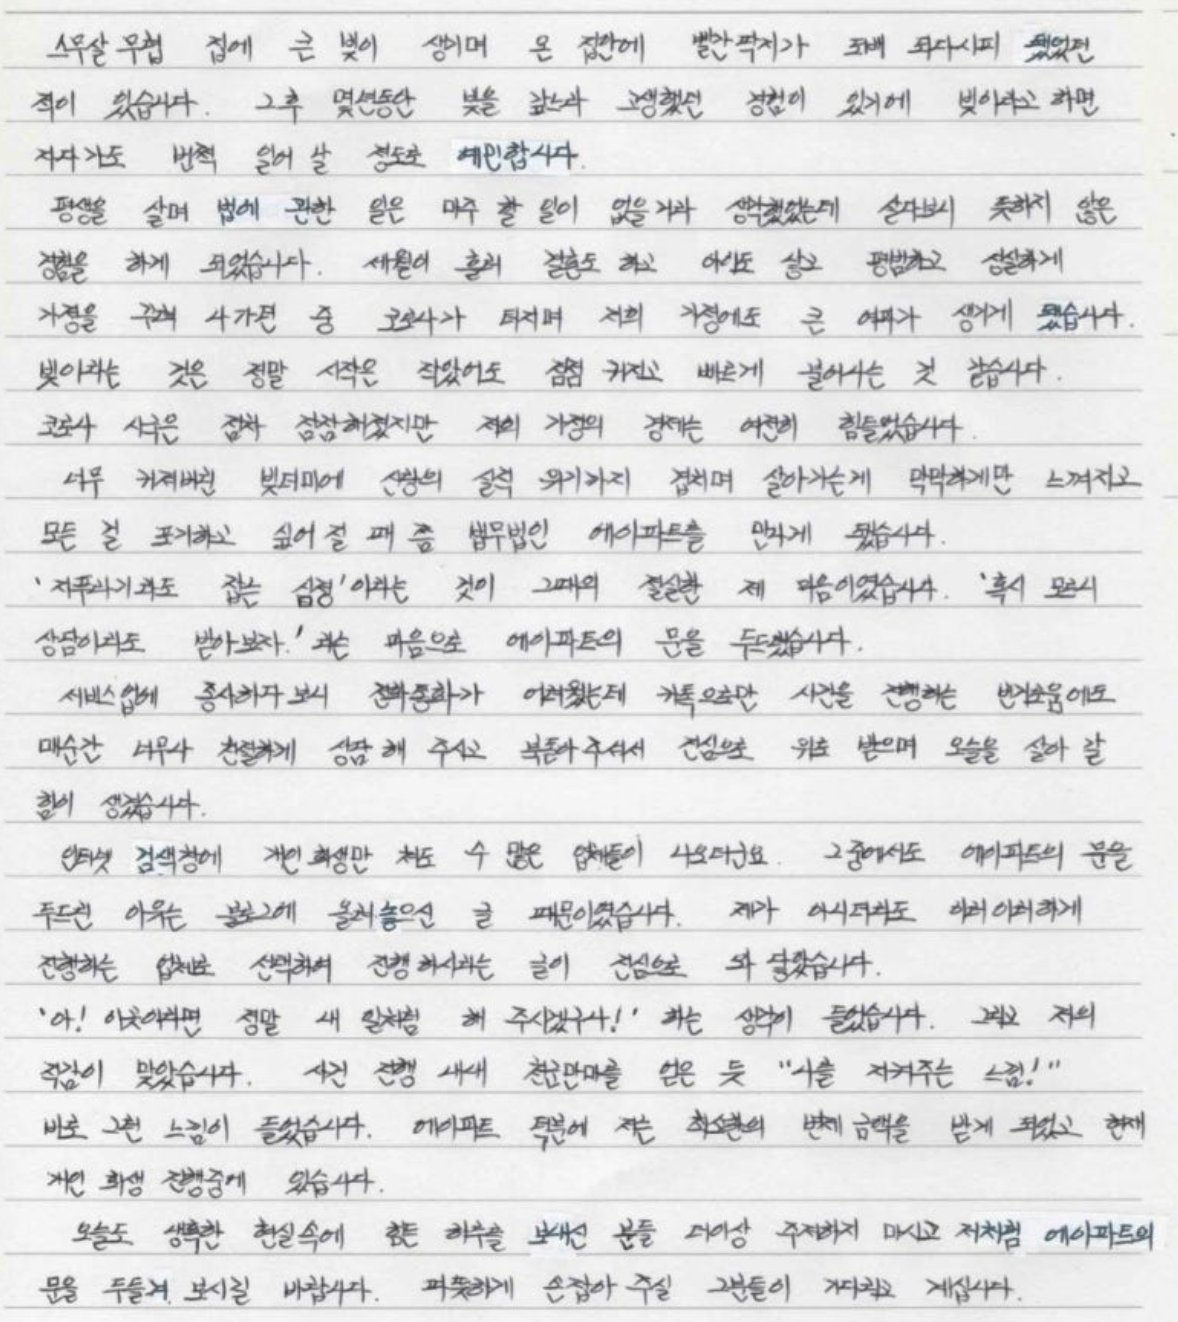 스무살 무렵 집에 큰 빚이 생기며 온 집안에 빨간딱지가 도배 되다시피 됐었던
적이 있습니다. 그후 몇년동안 빚을 갚느라 고생했던 경험이 있기에 빚이라고 하면
자다가도 번쩍 일어 날 정도로 예민합니다.
평생을 살며 법에 관한 일은 마주 할 일이 없을거라 생각했었는데 살다보니 뜻하지 않은
경험을 하게 되었습니다. 세월이 흘러 결혼도 하고 아이도 낳고 평범하고 성실하게
가정을 꾸려 나가던 중 코로나가 터지며 저희 가정에도 큰 여파가 생기게 됐습니다.
빚이라는 것은 정말 시작은 작았어도 점점 커지고 빠르게 불어나는 것 같습니다.
코로나 시국은 점차 잠잠해졌지만 저의 가정의 경제는 여전히 힘들었습니다.
너무 커져버린 빚더미에 신랑의 실직 위기까지 겹치며 살아가는게 막막하게만 느껴지고
모든 걸 포기하고 싶어 질 때 쯤 법무법인 에이파트를 만나게 됐습니다.
'지푸라기라도 잡는 심정'이라는 것이 그때의 절실한 제 마음이였습니다. '혹시 모르니
상담이라도 받아보자.' 라는 마음으로 에이파트의 문을 두드렸습니다.
서비스업에 종사하다 보니 전화통화가 어려웠는데 카톡으로만 사건을 진행하는 번거로움에도
매순간 너무나 친절하게 상담 해 주시고 북돋아주셔서 진심으로 위로 받으며 오늘을 살아 갈
힘이 생겼습니다.
인터넷 검색창에 개인회생만 쳐도 수 많은 업체들이 나오더군요. 그중에서도 에이파트의 문을
두드린 이유는 블로그에 올려놓으신 글 때문이였습니다. 제가 아니더라도 이러이러하게
진행하는 업체로 선택하여 진행 하시라는 글이 진심으로 와 닿았습니다.
'아! 이곳이라면 정말 내 일처럼 해 주시겠구나!' 하는 생각이 들었습니다. 그리고 저의
직감이 맞았습니다. 사건 진행 내내 천군만마를 얻은 듯 "나를 지켜주는 느낌!"
바로 그런 느낌이 들었습니다. 에이파트 덕분에 저는 최소한의 변제금액을 받게 되었고 현재
개인 회생 진행중에 있습니다.
오늘도 생혹한 현실속에 힘든 하루를 보내신 분들 더이상 주저하지 마시고 저처럼 에이파트의
문을 두들겨 보시길 바랍니다. 따뜻하게 손잡아 주실 그분들이 기다리고 계십니다.